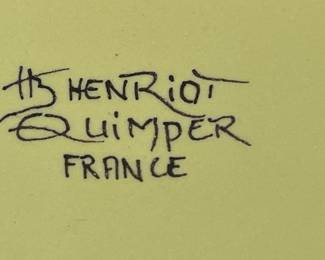 HB HENRIOT
QUIMPER
FRANCE